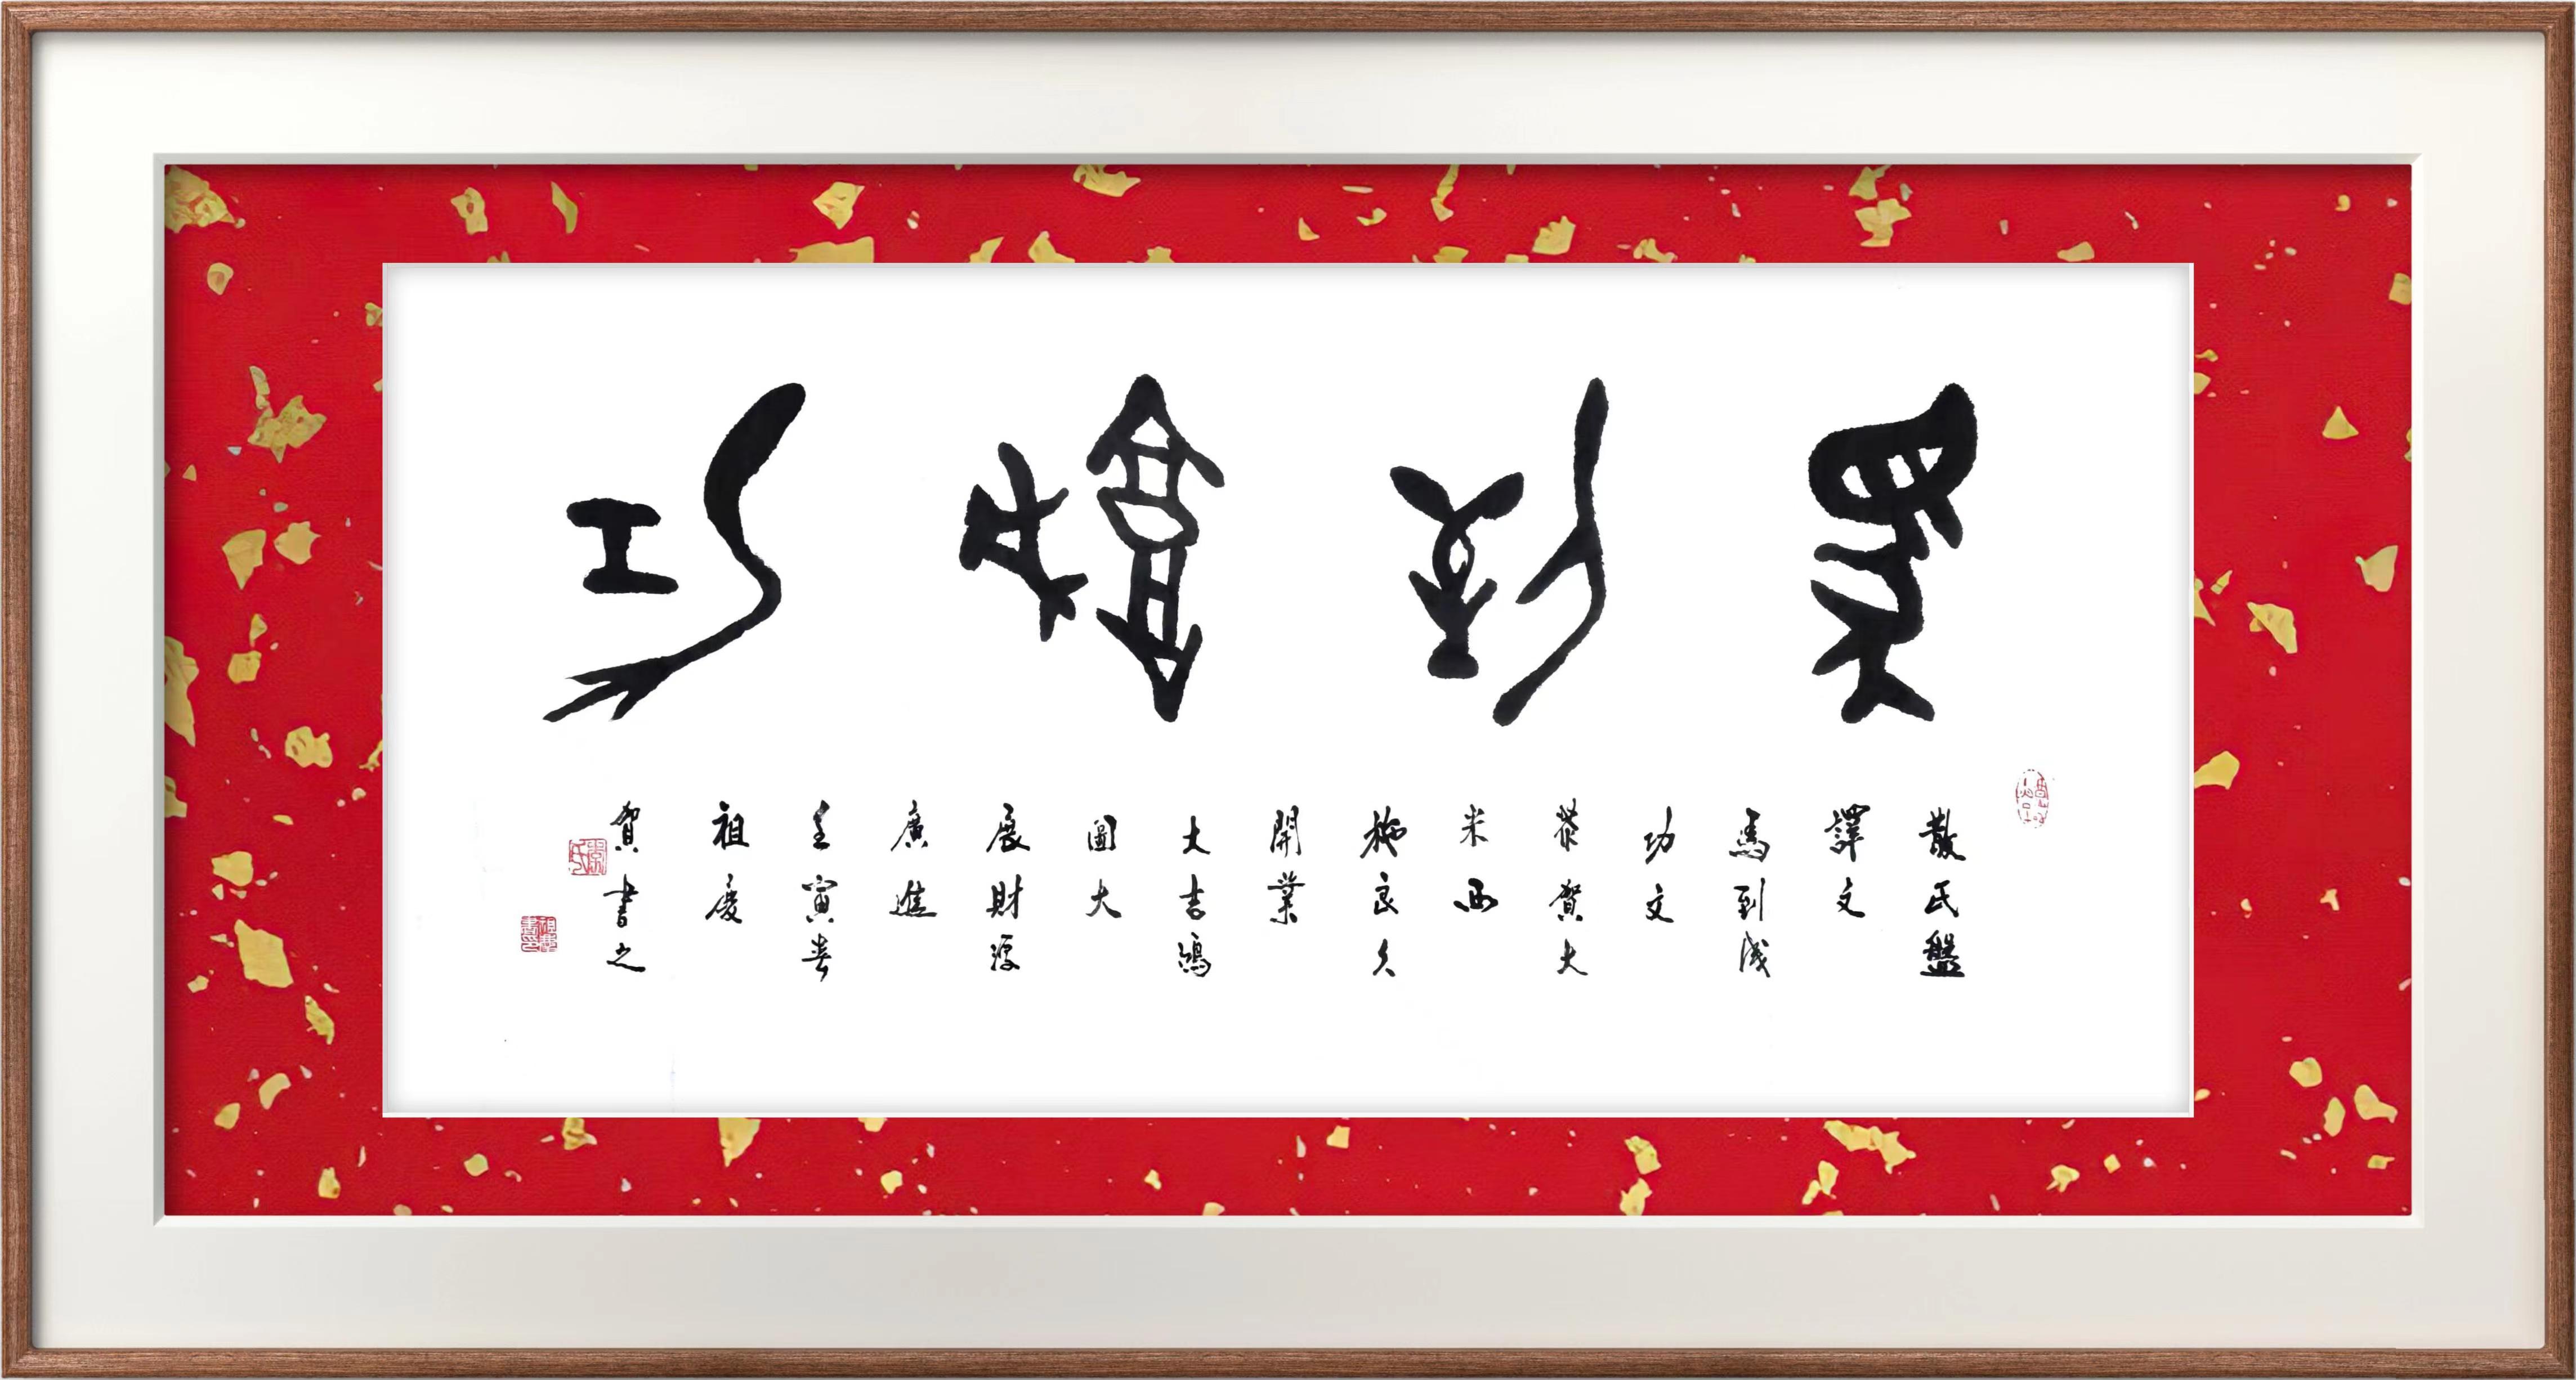 馬到成功
散氏盤
譯文
馬到成
功文
恭賀大
米西
施良久
開業
大吉鴻
圖大
展財源
廣進
壬寅春
祖慶
賀書之